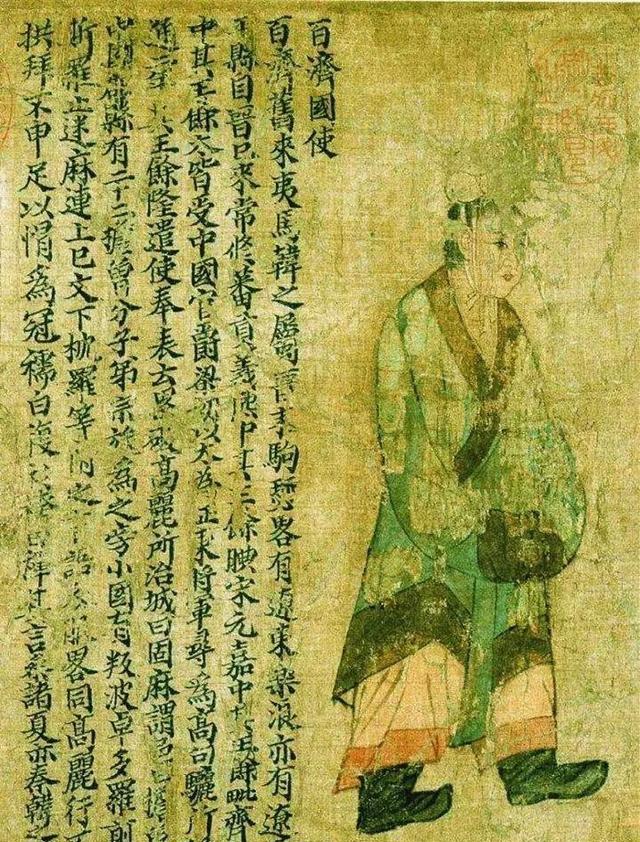 百濟國使
百濟舊來夷馬韓之屬晉末駒驪畧有遼東樂浪亦有遼
縣自晉已來常修蕃貢義熙中其王餘腆宋元嘉中其王餘毗齊
中其王餘太皆受中國官爵梁初以太為征東將軍尋為高句驪所
通二年其王餘隆遣使奉表云累破高麗所治城曰固麻謂邑曰檐
中國郡縣有二十二檐魯分子弟宗族為之旁小國有叛波卓多羅前
斯羅止迷麻連上巳文下枕羅等附之言語衣服畧同高麗行不
拱拜不申足以帽為冠襦曰複衫袴曰褌其言參諸夏亦秦韓之